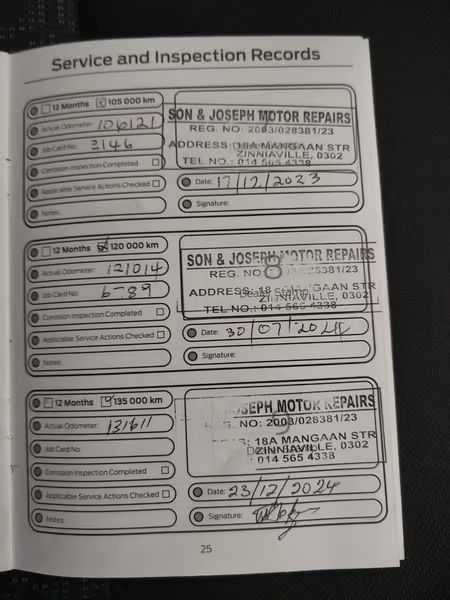 Service and Inspection Records
12 Months 105 000 km
Actual Odometer: 106121
Job Card No: 3146
Corrosion Inspection Completed
Applicable Service Actions Checked
Notes:
SON & JOSEPH MOTOR REPAIRS
REG. NO: 2003/028381/23
ADDRESS: 18A MANGAAN STR
ZINNIAVILLE, 0302
TEL NO.: 014 565 4338
Date: 17/12/2023
Signature:
12 Months 120 000 km
Actual Odometer: 121014
Job Card No: 6789
Corrosion Inspection Completed
Applicable Service Actions Checked
Notes:
SON & JOSEPH MOTOR REPAIRS
REG. NO 8 28381/23
ADDRESS: 18 GAAN STR
Dealer Stamp
ZINNIAVILLE, 0302
TEL NO.: 014 565 4338
Date: 30/07/2024
Signature:
12 Months 135 000 km
Actual Odometer: 131611
Job Card No:
Corrosion Inspection Completed
Applicable Service Actions Checked
Notes:
JOSEPH MOTOR REPAIRS
9
NO: 2003/028381/23
18A MANGAAN STR
ZINNIAVILLE, 0302
014 565 4338
Date: 23/12/2024
Signature:
25